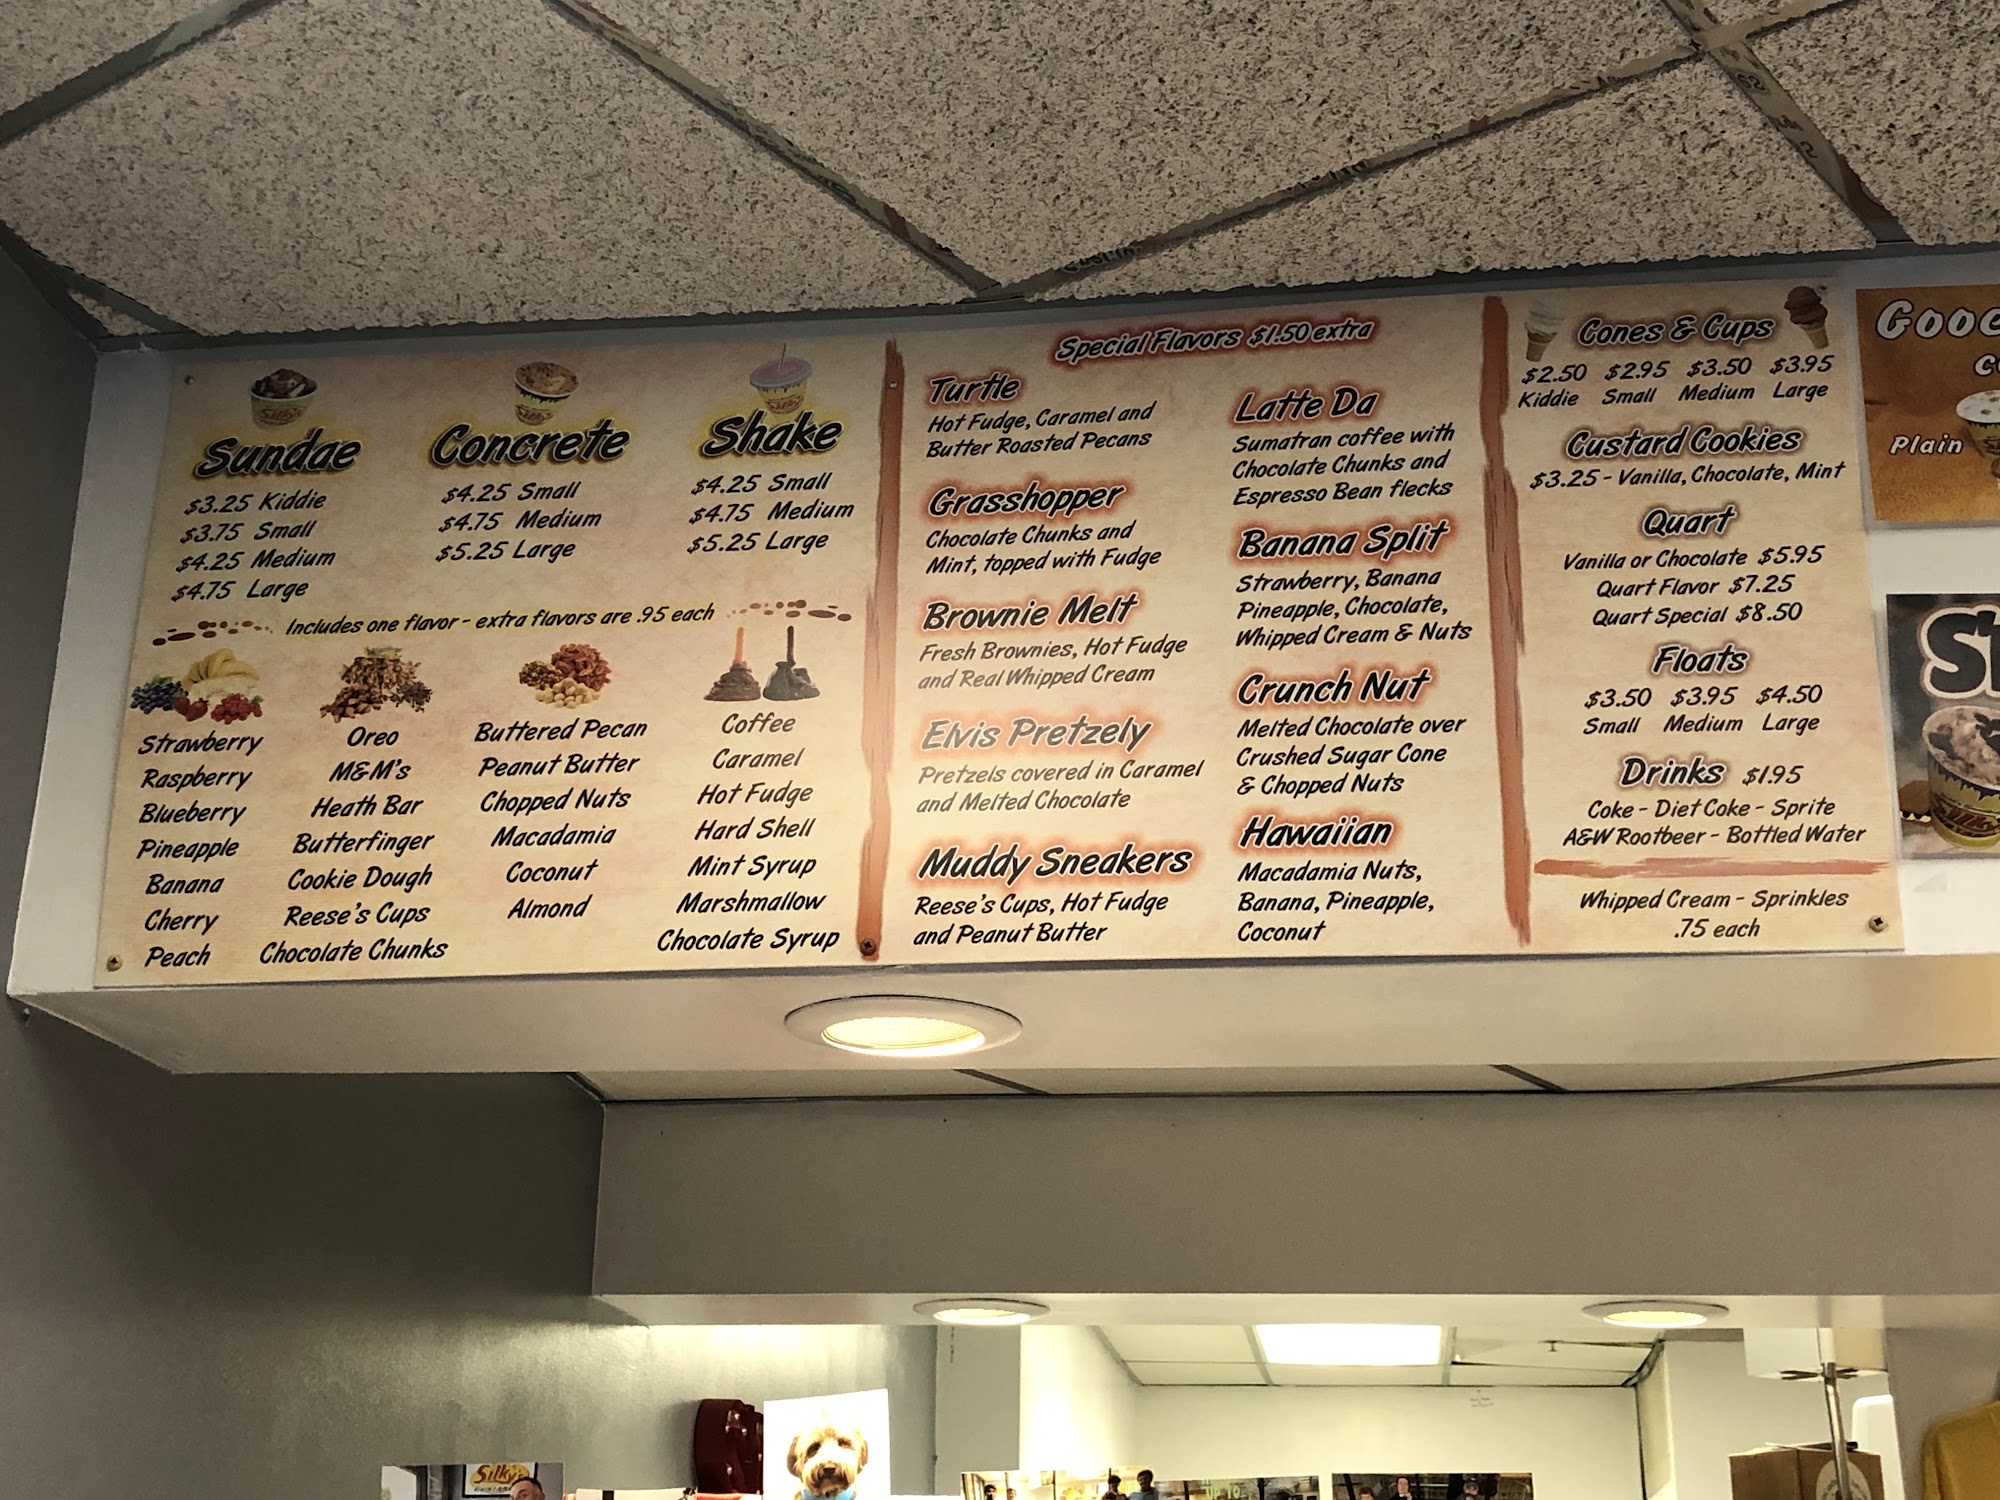 Sundae
$3.25 Kiddie
$3.75 Small
$4.25 Medium
$4.75 Large
Concrete
$4.25 Small
$4.75 Medium
$5.25 Large
Shake
$4.25 Small
$4.75 Medium
$5.25 Large
Includes one flavor - extra flavors are .95 each
Strawberry
Raspberry
Blueberry
Pineapple
Banana
Cherry
Peach
Oreo
M&M's
Heath Bar
Butterfinger
Cookie Dough
Reese's Cups
Chocolate Chunks
Buttered Pecan
Peanut Butter
Chopped Nuts
Macadamia
Coconut
Almond
Coffee
Caramel
Hot Fudge
Hard Shell
Mint Syrup
Marshmallow
Chocolate Syrup
Special Flavors $1.50 extra
Turtle
Hot Fudge, Caramel and
Butter Roasted Pecans
Grasshopper
Chocolate Chunks and
Mint, topped with Fudge
Brownie Melt
Fresh Brownies, Hot Fudge
and Real Whipped Cream
Elvis Pretzely
Pretzels covered in Caramel
and Melted Chocolate
Muddy Sneakers
Reese's Cups, Hot Fudge
and Peanut Butter
Latte Da
Sumatran coffee with
Chocolate Chunks and
Espresso Bean flecks
Banana Split
Strawberry, Banana
Pineapple, Chocolate,
Whipped Cream & Nuts
Crunch Nut
Melted Chocolate over
Crushed Sugar Cone
& Chopped Nuts
Hawaiian
Macadamia Nuts,
Banana, Pineapple,
Coconut
Cones & Cups
$2.50 $2.95 $3.50 $3.95
Kiddie Small Medium Large
Custard Cookies
$3.25 - Vanilla, Chocolate, Mint
Quart
Vanilla or Chocolate $5.95
Quart Flavor $7.25
Quart Special $8.50
Floats
$3.50 $3.95 $4.50
Small Medium Large
Drinks $1.95
Coke - Diet Coke - Sprite
A&W Rootbeer - Bottled Water
Whipped Cream - Sprinkles
.75 each
Plain
Silky's